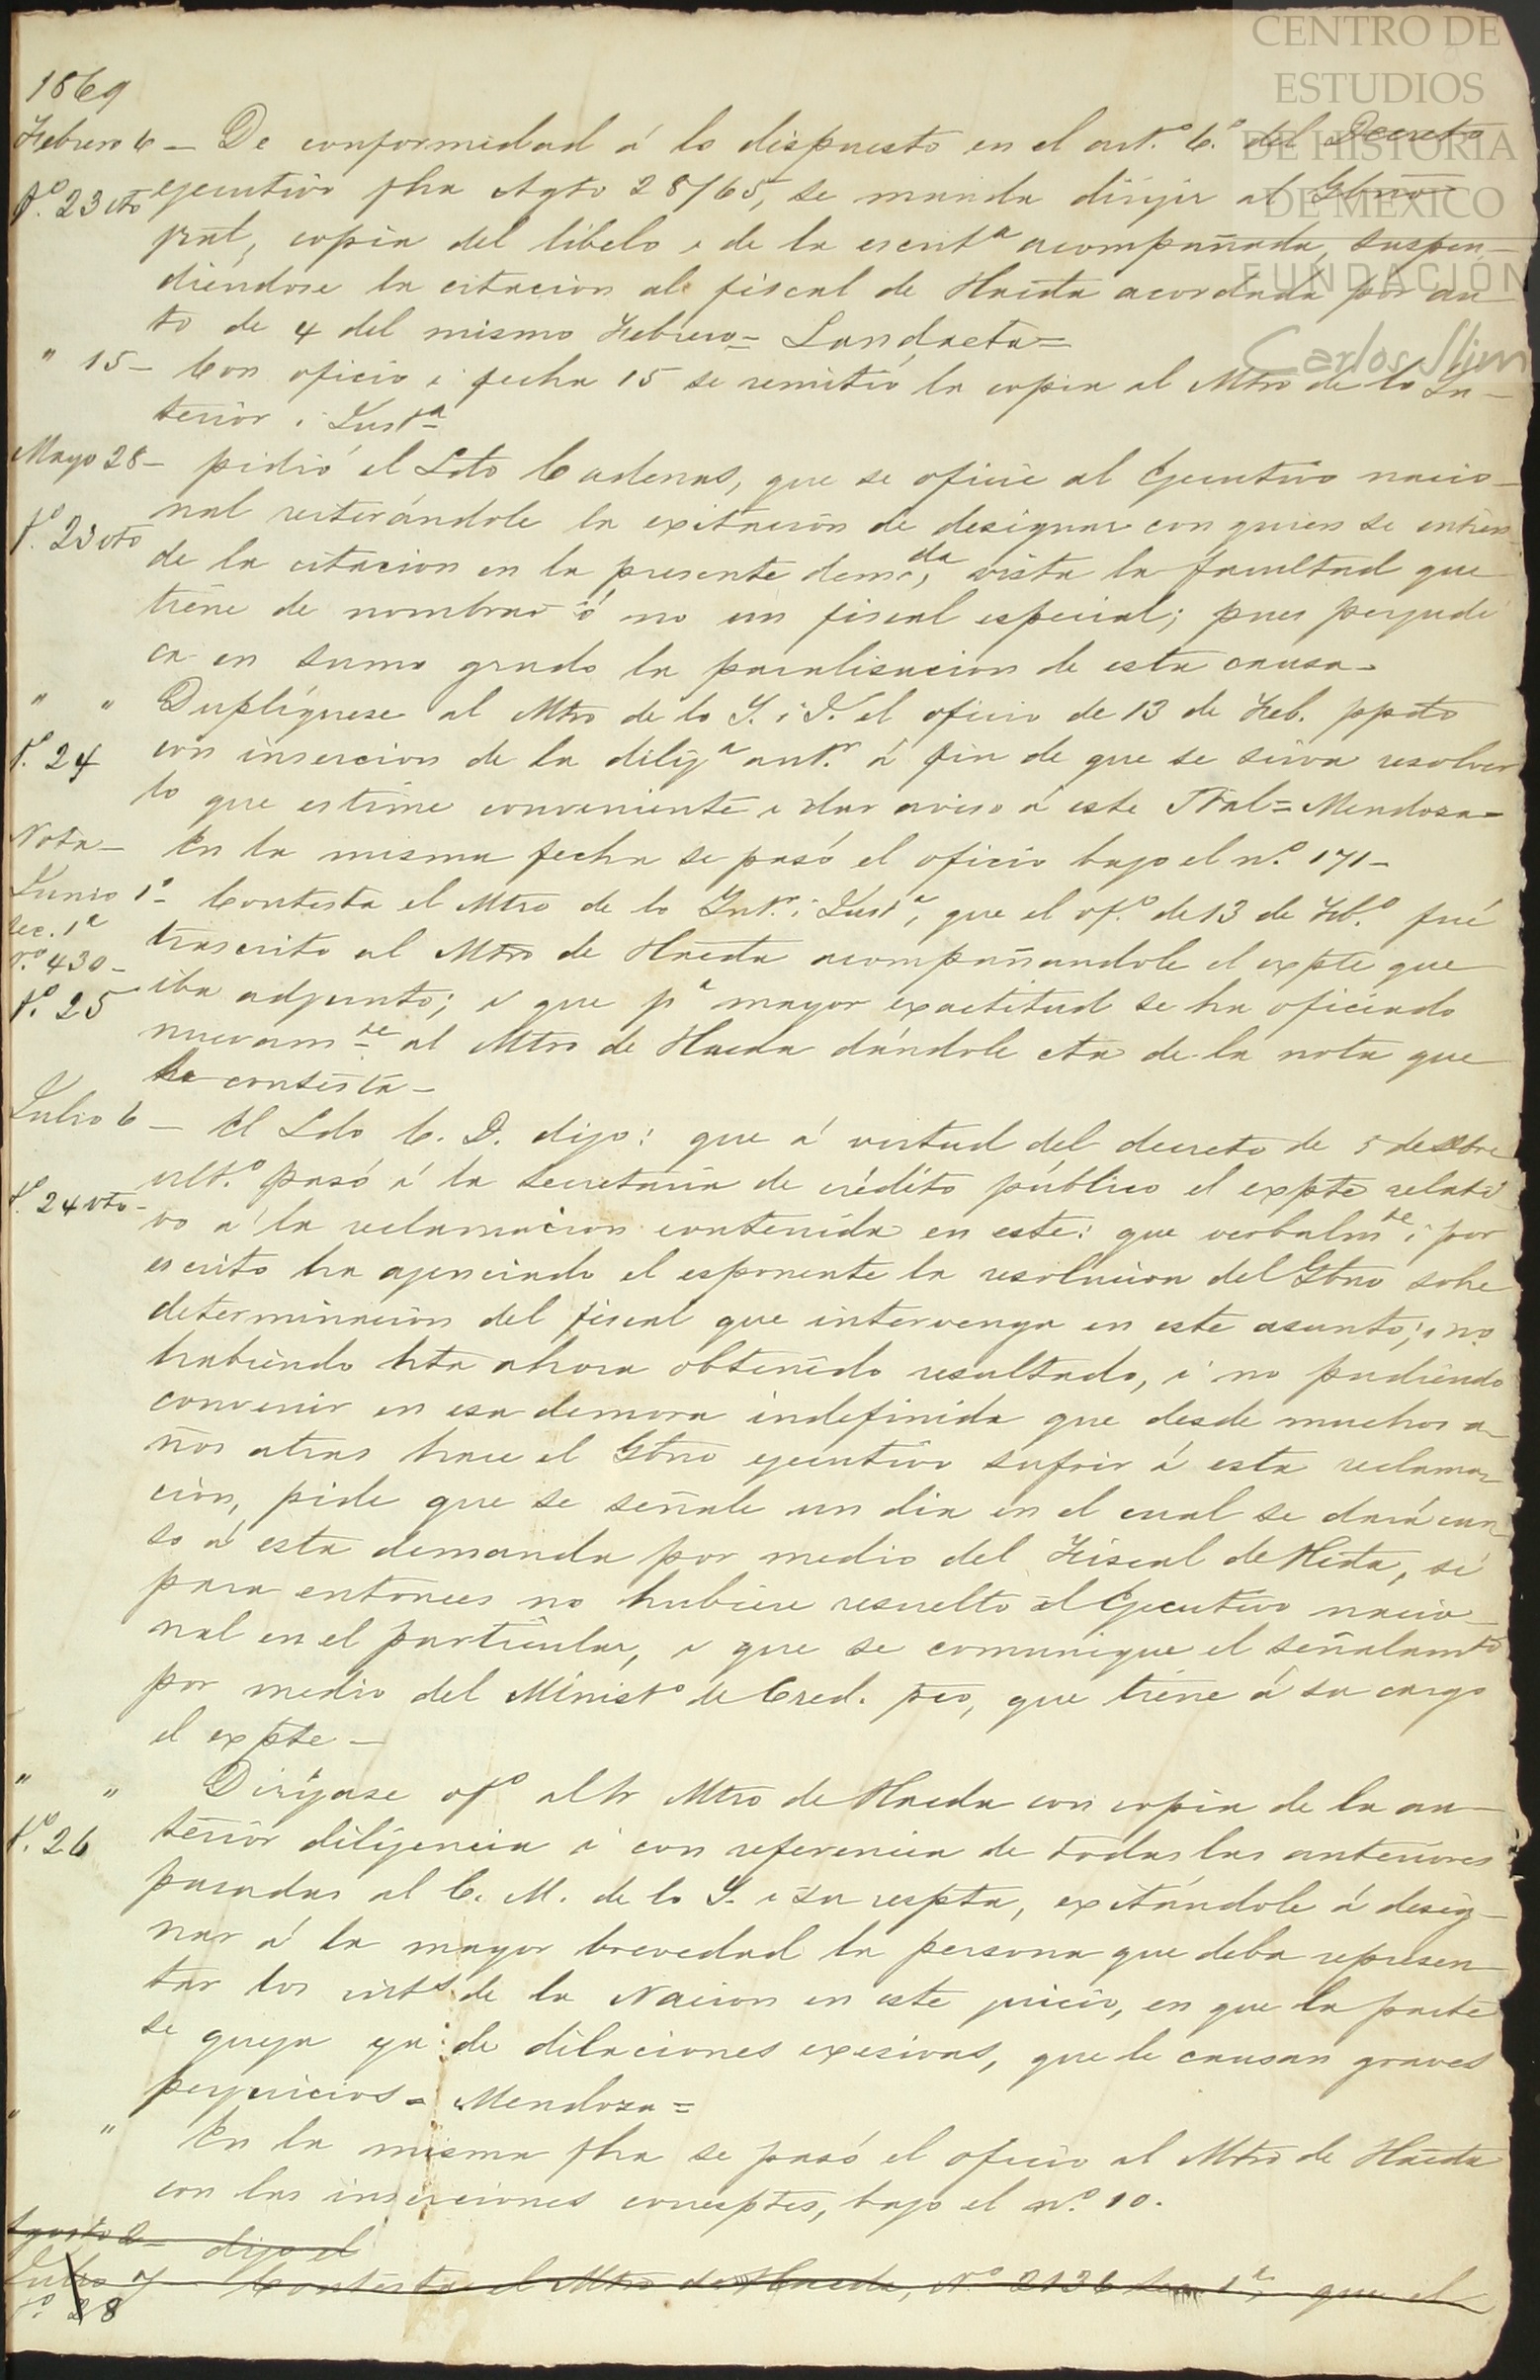 CENTRO DE
ESTUDIOS
DE HISTORIA
DE MÉXICO
FUNDACIÓN
Carlos Slim
1869
Febrero 6 — De conformidad á lo dispuesto en el art.º 6.º del Decreto
f.º 23 vto ejecutivo fha Agto 28/65, se manda dirijir al Gbno
gral, copia del libelo i de la escritª acompañada, suspen-
diéndose la citacion al fiscal de Hacda acordada por au-
to de 4 del mismo Febrero = Landaeta =
" 15 — Con oficio i fecha 15 se remitió la copia al Mtro de lo In-
terior i Justª
Mayo 28 — pidió el Ldo Cadenas, que se oficie al Ejecutivo nacio-
nal reiterándole la exitacion de designar con quien se entien-
f.º 23 vto
de la citacion en la presente demda, vista la facultad que
tiene de nombrar ó no un fiscal especial; pues perjudi
ca en sumo grado la paralisacion de esta causa —
" " Duplíquese al Mtro de lo I. i J. el oficio de 13 de Feb. ppdo
f.º 24 con insercion de la diligª ant.r á fin de que se sirva resolver
lo que estime conveniente i dar aviso á este Tral = Mendoza =
Nota — En la misma fecha se pasó el oficio bajo el n.º 171 —
Junio 1º — Contesta el Mtro de lo Int.r i Justª, que el of.º de 13 de Feb.º fué
Sec. 1ª
n.º 430 — trascrito al Mtro de Hacda acompañandole el expte que
f.º 25 iba adjunto; i que pª mayor exactitud se ha oficiado
nuevamte al Mtro de Hacda dándole cta de la nota que
se contesta —
Julio 6 — El Ldo C. D. dijo: que á virtud del decreto de 5 de
ult.º pasó á la Secretaría de crédito público el expte relati
f.º 24 vto —
vo á la reclamacion contenida en este: que verbalmte i por
escrito ha ajenciado el esponente la resolucion del Gbno sobre
determinacion del fiscal que intervenga en este asunto; i no
habiendo hta ahora obtenido resultado, i no pudiendo
convenir en esa demora indefinida que desde muchos a-
ños atras hace el Gbno ejecutivo sufrir á esta reclama-
cion, pide que se señale un dia en el cual se dará cur-
so á esta demanda por medio del Fiscal de Hcda, si
para entonces no hubiere resuelto el Ejecutivo nacio-
nal en el particular, i que se comunique el señalamto
por medio del Minist.º de Cred. pco, que tiene á su cargo
el expte —
" " Diríjase of.º al Sr Mtro de Hacda con copia de la an-
f.º 26 terior diligencia i con referencia de todas las anteriores
pasadas al C. M. de lo I. i su respta, exitándole á desig-
nar á la mayor brevedad la persona que deba represen-
tar los ints de la Nacion en este juicio, en que la parte
se queja ya de dilaciones exesivas, que le causan graves
perjuicios = Mendoza =
" " En la misma fha se pasó el oficio al Mtro de Hacda
con las inserciones corresptes, bajo el n.º 10.
Agosto 2 — dijo el
Julio 7 — Contesta el Mtro de Hacda, N.º 2136 1ª, que el
f.º 28